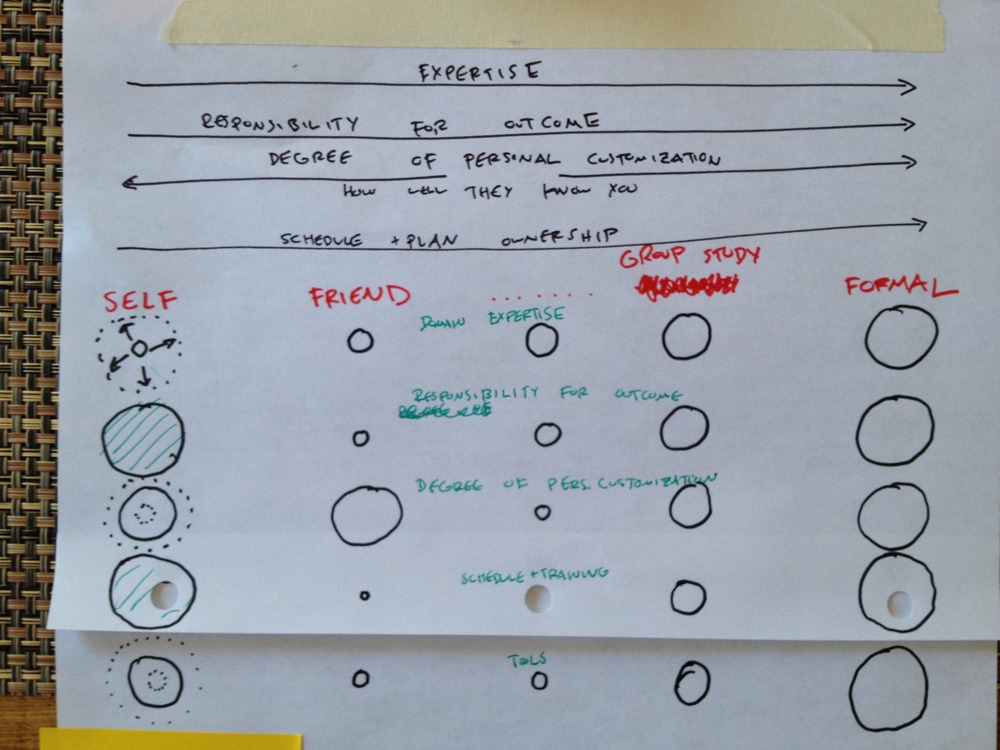 EXPERTISE
RESPONSIBILITY FOR OUTCOME
DEGREE OF PERSONAL CUSTOMIZATION
HOW WELL THEY KNOW YOU
SCHEDULE + PLAN OWNERSHIP
GROUP STUDY
SELF FRIEND ....... FORMAL
DOMAIN EXPERTISE
RESPONSIBILITY FOR OUTCOME
DEGREE OF PERS. CUSTOMIZATION
SCHEDULE + TRAINING
TOOLS